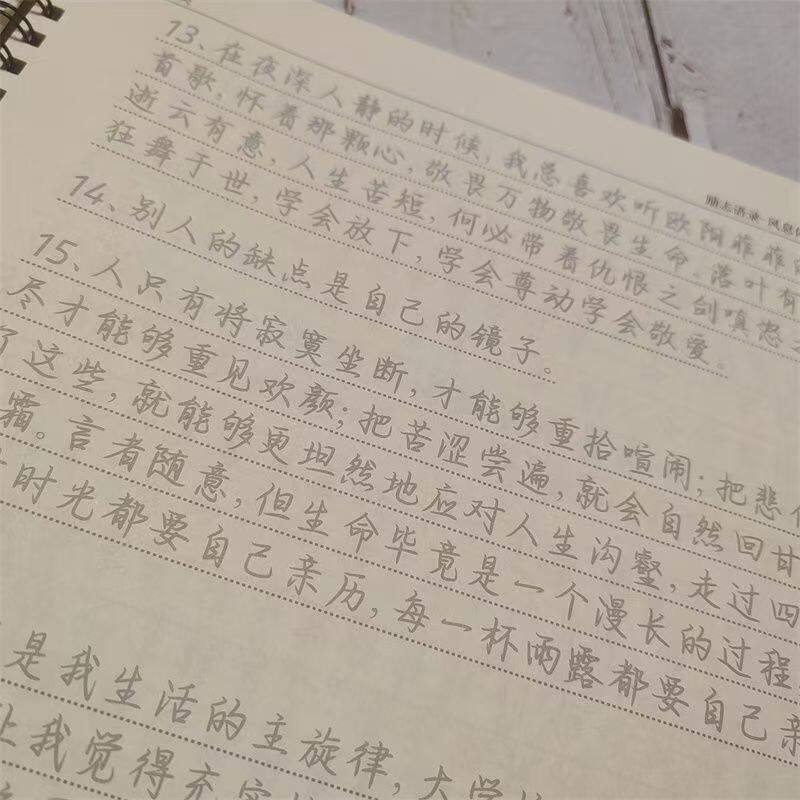 励志语录 风息
13、在夜深人静的时候，我总喜欢听欧阳菲菲
首歌，怀着那颗心，敬畏万物敬畏生命。落叶有
逝云有意，人生苦短，何必带着仇恨之剑嗔怒
狂舞于世，学会放下，学会尊动学会敬爱。
14、别人的缺点是自己的镜子。
15、人只有将寂寞坐断，才能够重拾喧闹；把悲
尽才能够重见欢颜；把苦涩尝遍，就会自然回甘
了这些，就能够更坦然地应对人生沟壑，走过四
霜。言者随意，但生命毕竟是一个漫长的过程
时光都要自己亲历，每一杯雨露都要自己亲
是我生活的主旋律，大学
让我觉得充实